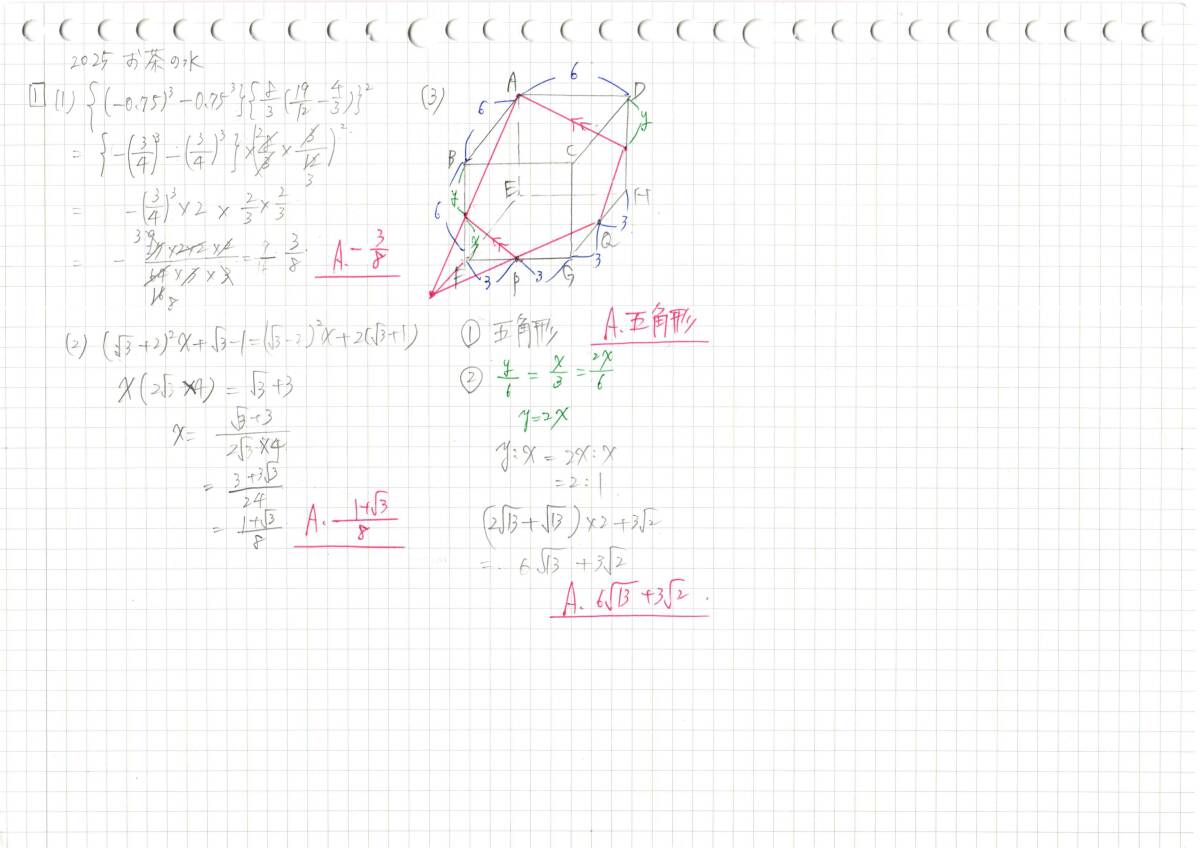 2025 お茶の水
1 (1) {(-0.75)³-0.75³}{8/3(19/12-4/3)}²
= {-(3/4)³-(3/4)³}×(8/3×3/12)²
= -(3/4)³×2×2/3×2/3
A. -3/8
(2) (√3+2)²x+√3-1=(√3-2)²x+2(√3+1)
x(2√3×4)=√3+3
x= (√3+3)/(2√3×4)
= (3+3√3)/24
= (1+√3)/8
A. (1+√3)/8
(3)
A 6 D
6 y
B C
y E H
6 x Q 3
F 3 P 3 G 3
① 五角形 A. 五角形
② y/6 = x/3 = 2x/6
y=2x
y:x=2x:x
=2:1
(2√13+√13)×2+3√2
= 6√13+3√2
A. 6√13+3√2